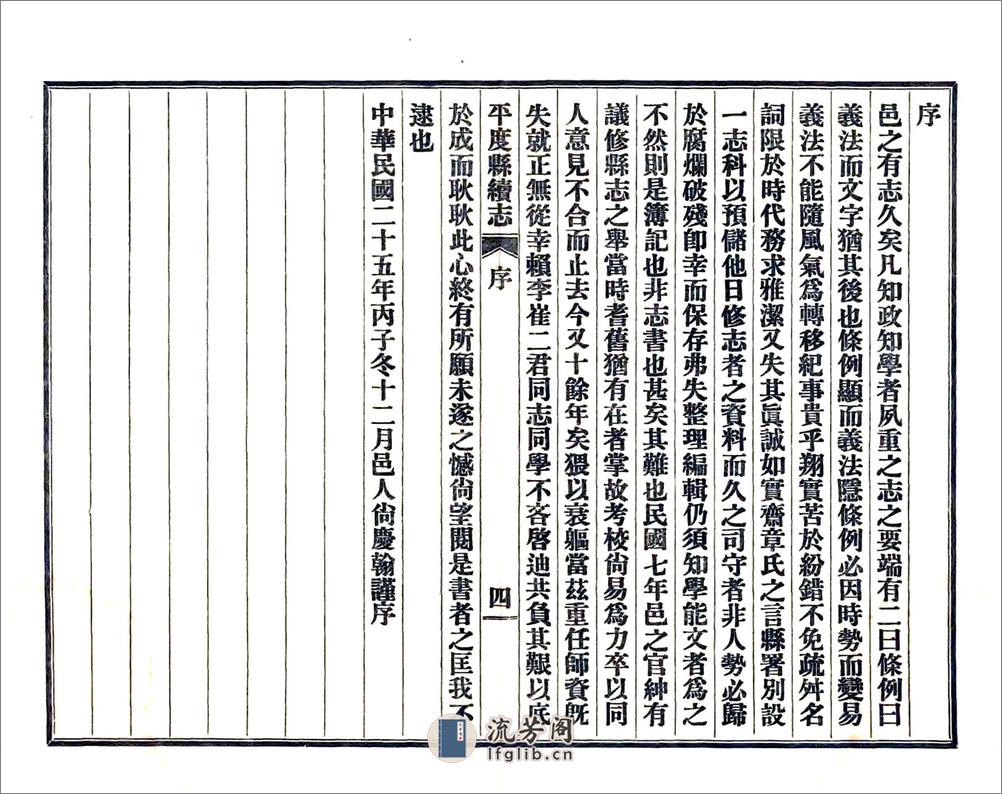 序
邑之有志久矣凡知政知學者夙重之志之要端有二曰條例曰
義法而文字猶其後也條例顯而義法隱條例必因時勢而變易
義法不能隨風氣爲轉移紀事貴乎翔實苦於紛錯不免疏舛名
詞限於時代務求雅潔又失其眞誠如實齋章氏之言縣署別設
一志科以預儲他日修志者之資料而久之司守者非人勢必歸
於腐爛破殘卽幸而保存弗失整理編輯仍須知學能文者爲之
不然則是簿記也非志書也甚矣其難也民國七年邑之官紳有
議修縣志之舉當時耆舊猶有在者掌故考校尙易爲力卒以同
人意見不合而止去今又十餘年矣猥以衰軀當茲重任師資旣
失就正無從幸賴李崔二君同志同學不吝啓迪共負其艱以底
平度縣續志 序 四
於成而耿耿此心終有所願未遂之憾尙望閱是書者之匡我不
逮也
中華民國二十五年丙子冬十二月邑人尙慶翰謹序
流芳阁
lfglib.cn